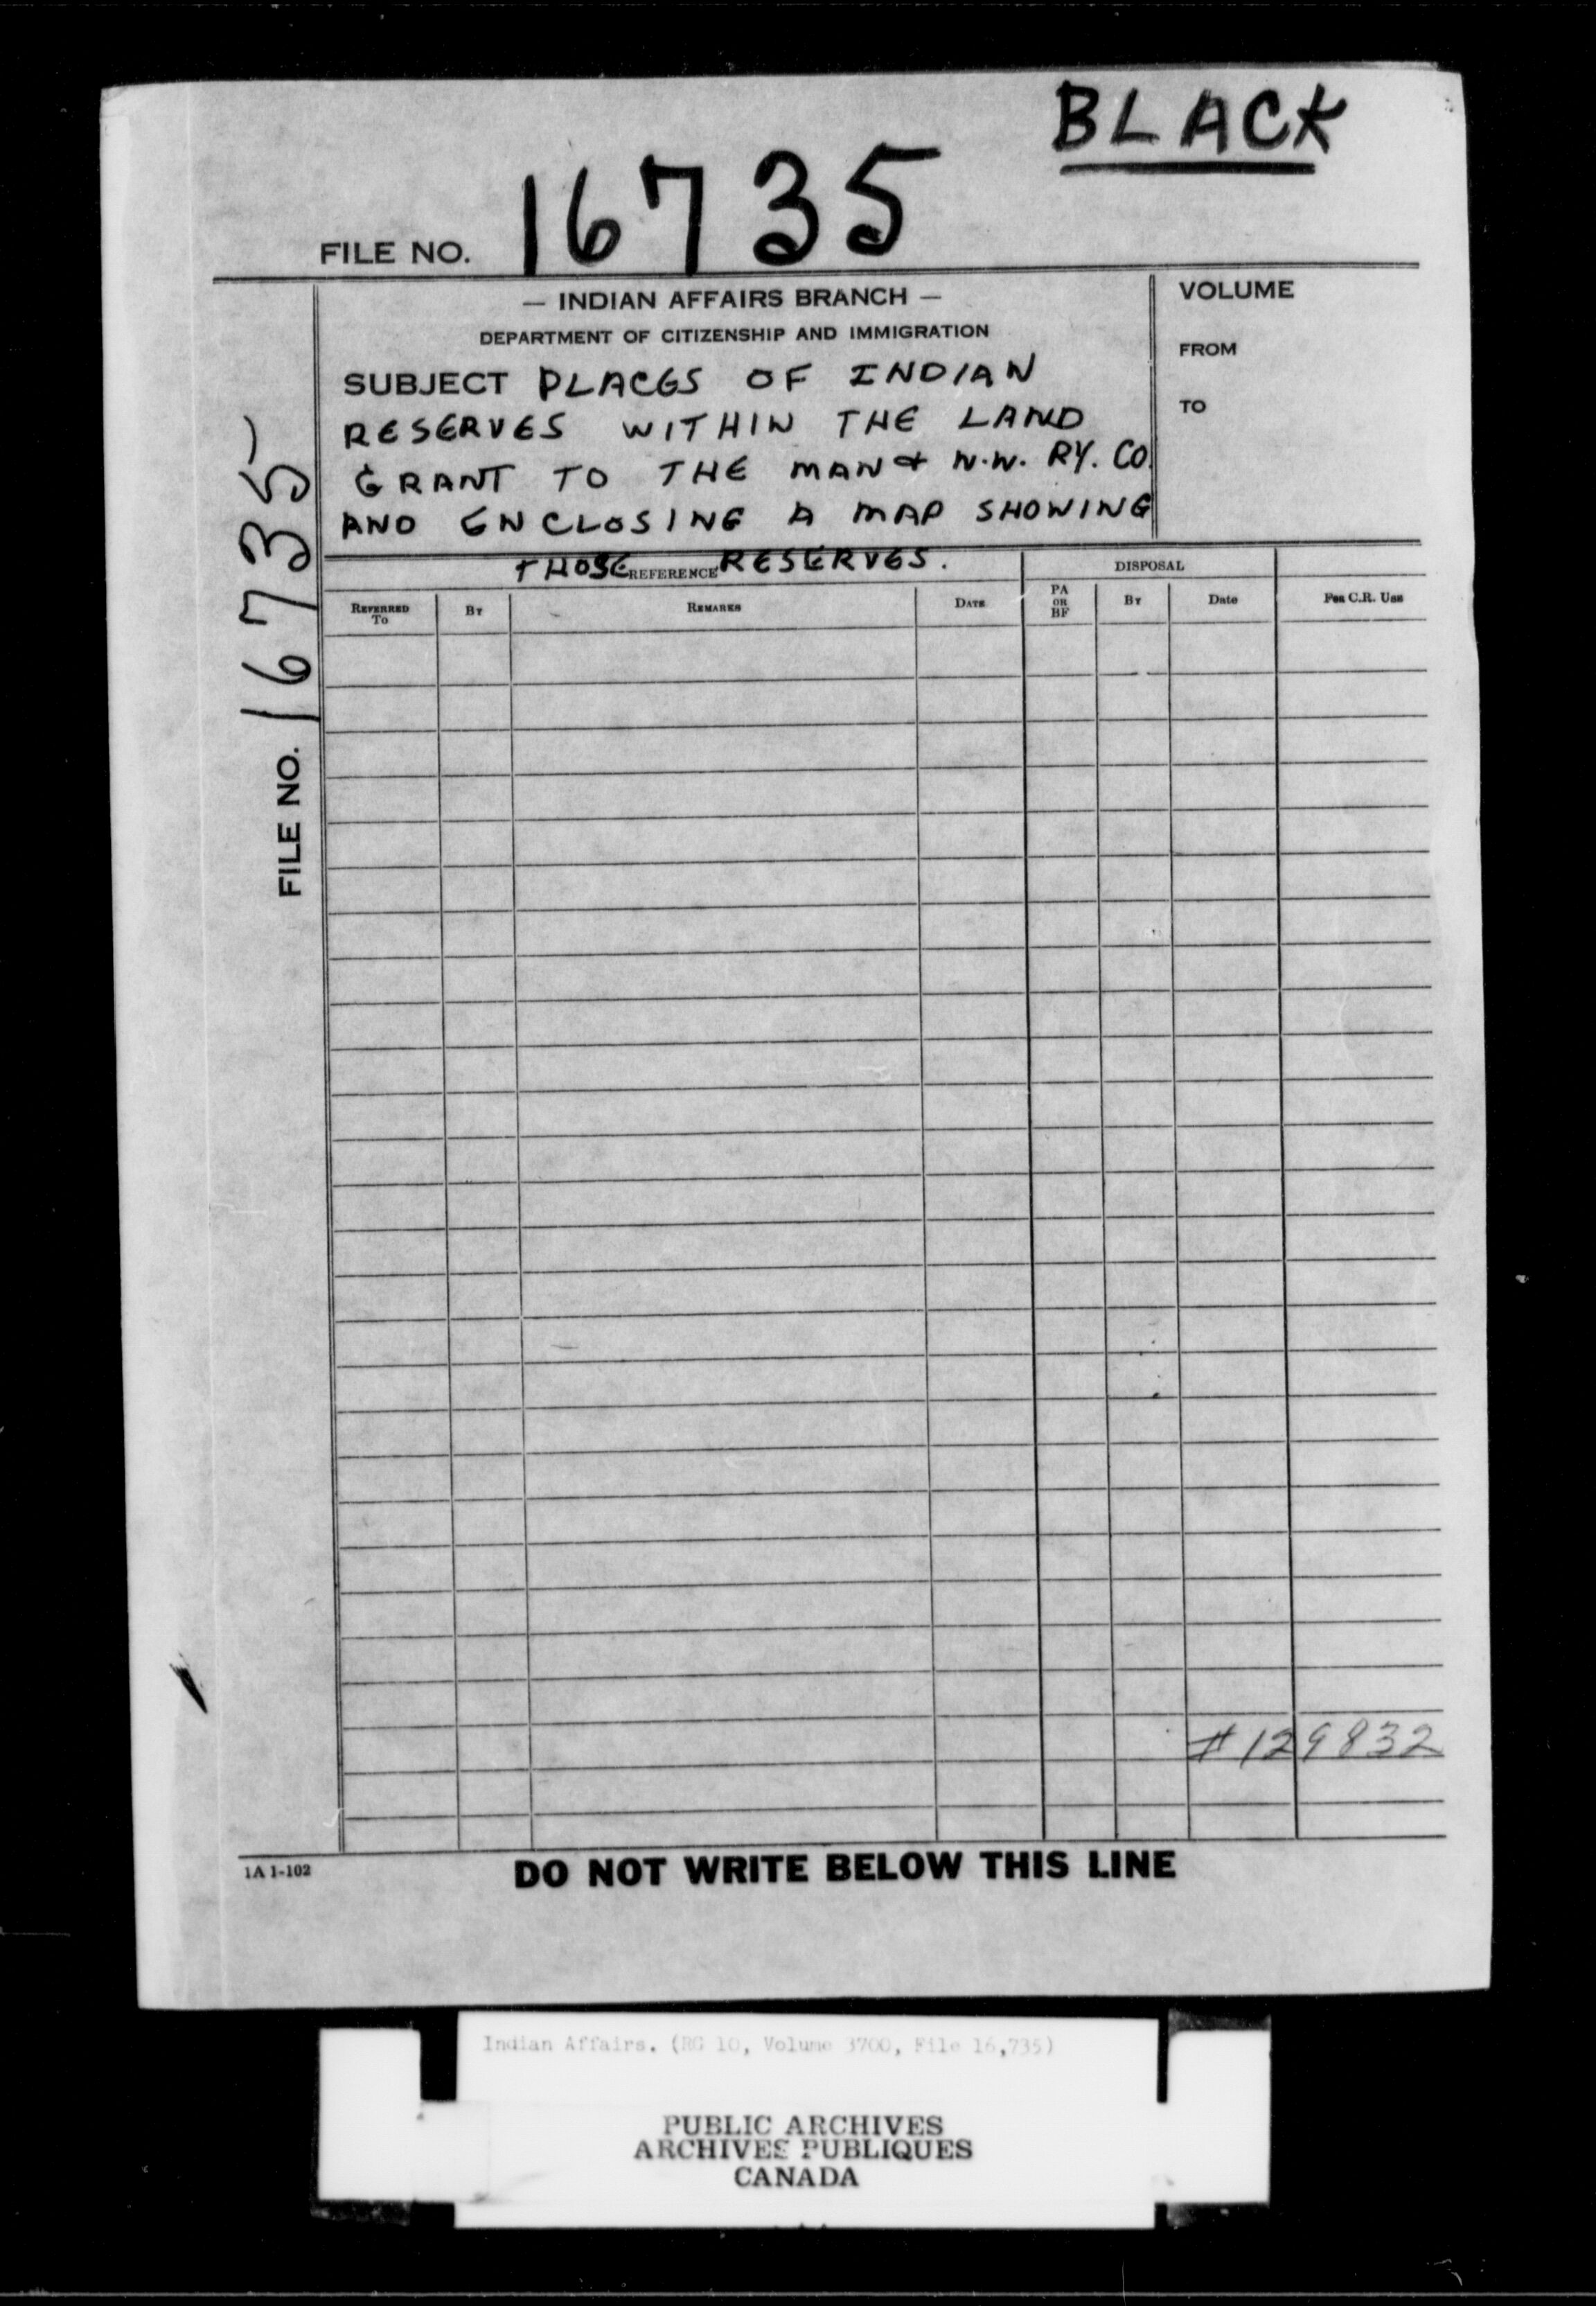 BLACK
FILE NO. 16735
— INDIAN AFFAIRS BRANCH —
DEPARTMENT OF CITIZENSHIP AND IMMIGRATION
SUBJECT PLACES OF INDIAN
RESERVES WITHIN THE LAND
GRANT TO THE MAN & N.W. RY. CO.
AND ENCLOSING A MAP SHOWING
THOSE RESERVES.
VOLUME
FROM
TO
FILE NO. 16735
REFERENCE
DISPOSAL
REFERRED TO
BY
REMARKS
DATE
PA OR BF
BY
Date
FOR C.R. USE
# 129832
1A 1-102
DO NOT WRITE BELOW THIS LINE
Indian Affairs. (RG 10, Volume 3700, File 16,735)
PUBLIC ARCHIVES
ARCHIVES PUBLIQUES
CANADA